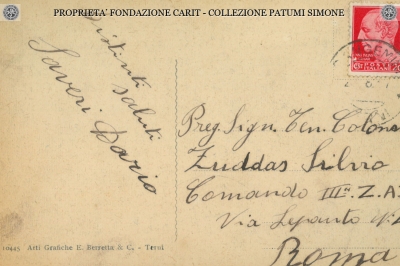 PROPRIETA' FONDAZIONE CARIT - COLLEZIONE PATUMI SIMONE
Distinti
saluti
Saveri Dario
Preg. Sign. Ten. Colon
Zuddas Silvio
Comando III° Z.A
Via Lepanto
Roma
10445 Arti Grafiche E. Berretta & C. - Terni